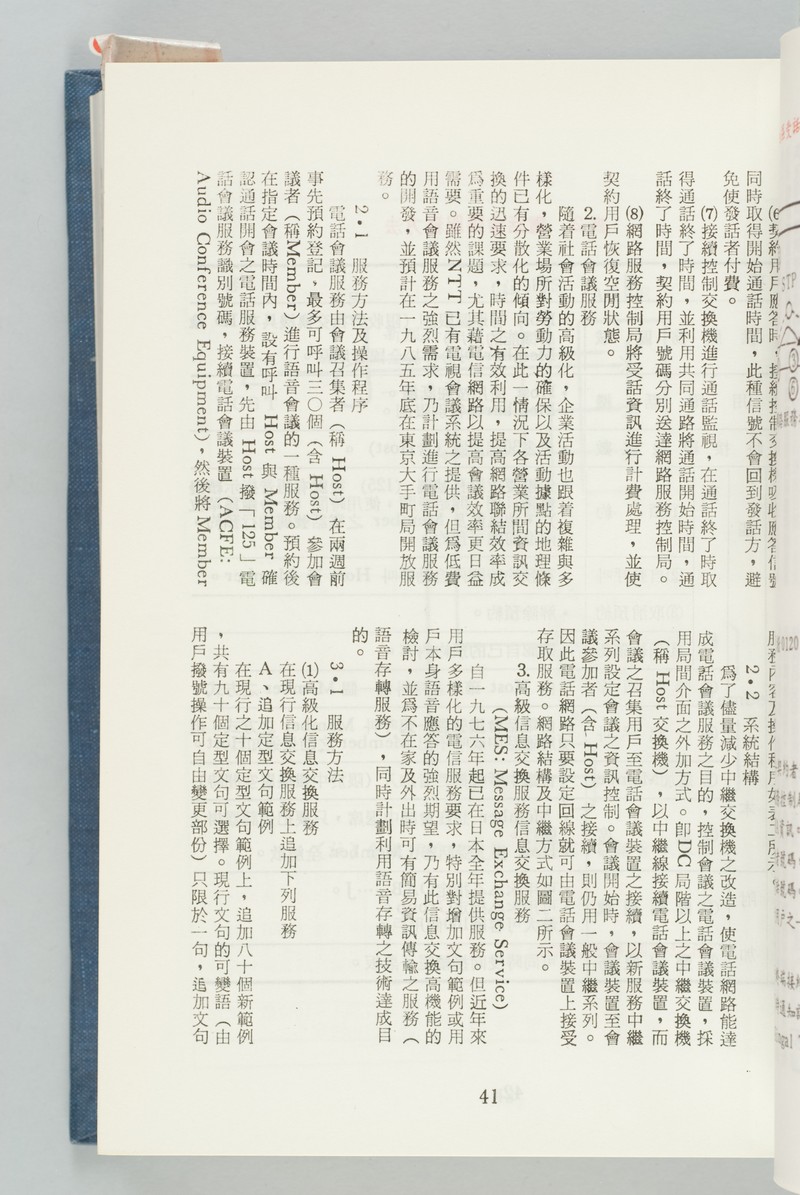 ⑹契約用戶應答時，接續控制交換機吸收應答信號
同時取得開始通話時間，此種信號不會回到發話方，避
免使發話者付費。
⑺接續控制交換機進行通話監視，在通話終了時取
得通話終了時間，並利用共同通路將通話開始時間，通
話終了時間，契約用戶號碼分別送達網路服務控制局。
⑻網路服務控制局將受話資訊進行計費處理，並使
契約用戶恢復空閒狀態。
2.電話會議服務
隨着社會活動的高級化，企業活動也跟着複雜與多
樣化，營業場所對勞動力的確保以及活動據點的地理條
件已有分散化的傾向。在此一情況下各營業所間資訊交
換的迅速要求，時間之有效利用，提高網路聯結效率成
爲重要的課題，尤其藉電信網路以提高會議效率更日益
需要。雖然NTT已有電視會議系統之提供，但爲低費
用語音會議服務之強烈需求，乃計劃進行電話會議服務
的開發，並預計在一九八五年底在東京大手町局開放服
務。
2•1　服務方法及操作程序
電話會議服務由會議召集者（稱 Host）在兩週前
事先預約登記，最多可呼叫三〇個（含 Host）參加會
議者（稱Member）進行語音會議的一種服務。預約後
在指定會議時間內，設有呼叫 Host 與 Member 確
認通話開會之電話服務裝置，先由 Host 撥「125」電
話會議服務識別號碼，接續電話會議裝置（ACFE:
Audio Conference Equipment)，然後將 Member
服務內容及操作程序如表二所示。
2•2　系統結構
爲了儘量減少中繼交換機之改造，使電話網路能達
成電話會議服務之目的，控制會議之電話會議裝置，採
用局間介面之外加方式。卽DC局階以上之中繼交換機
（稱 Host 交換機），以中繼線接續電話會議裝置，而
會議之召集用戶至電話會議裝置之接續，以新服務中繼
系列設定會議之資訊控制。會議開始時，會議裝置至會
議參加者（含 Host）之接續，則仍用一般中繼系列。
因此電話網路只要設定回線就可由電話會議裝置上接受
存取服務。網路結構及中繼方式如圖二所示。
3.高級信息交換服務信息交換服務
(MES: Message Exchange Service)
自一九七六年起已在日本全年提供服務。但近年來
用戶多樣化的電信服務要求，特別對增加文句範例或用
戶本身語音應答的強烈期望，乃有此信息交換高機能的
檢討，並爲不在家及外出時可有簡易資訊傳輸之服務（
語音存轉服務），同時計劃利用語音存轉之技術達成目
的。
3•1　服務方法
⑴高級化信息交換服務
在現行信息交換服務上追加下列服務
A、追加定型文句範例
在現行之十個定型文句範例上，追加八十個新範例
，共有九十個定型文句可選擇。現行文句的可變語（由
用戶撥號操作可自由變更部份）只限於一句，追加文句
41